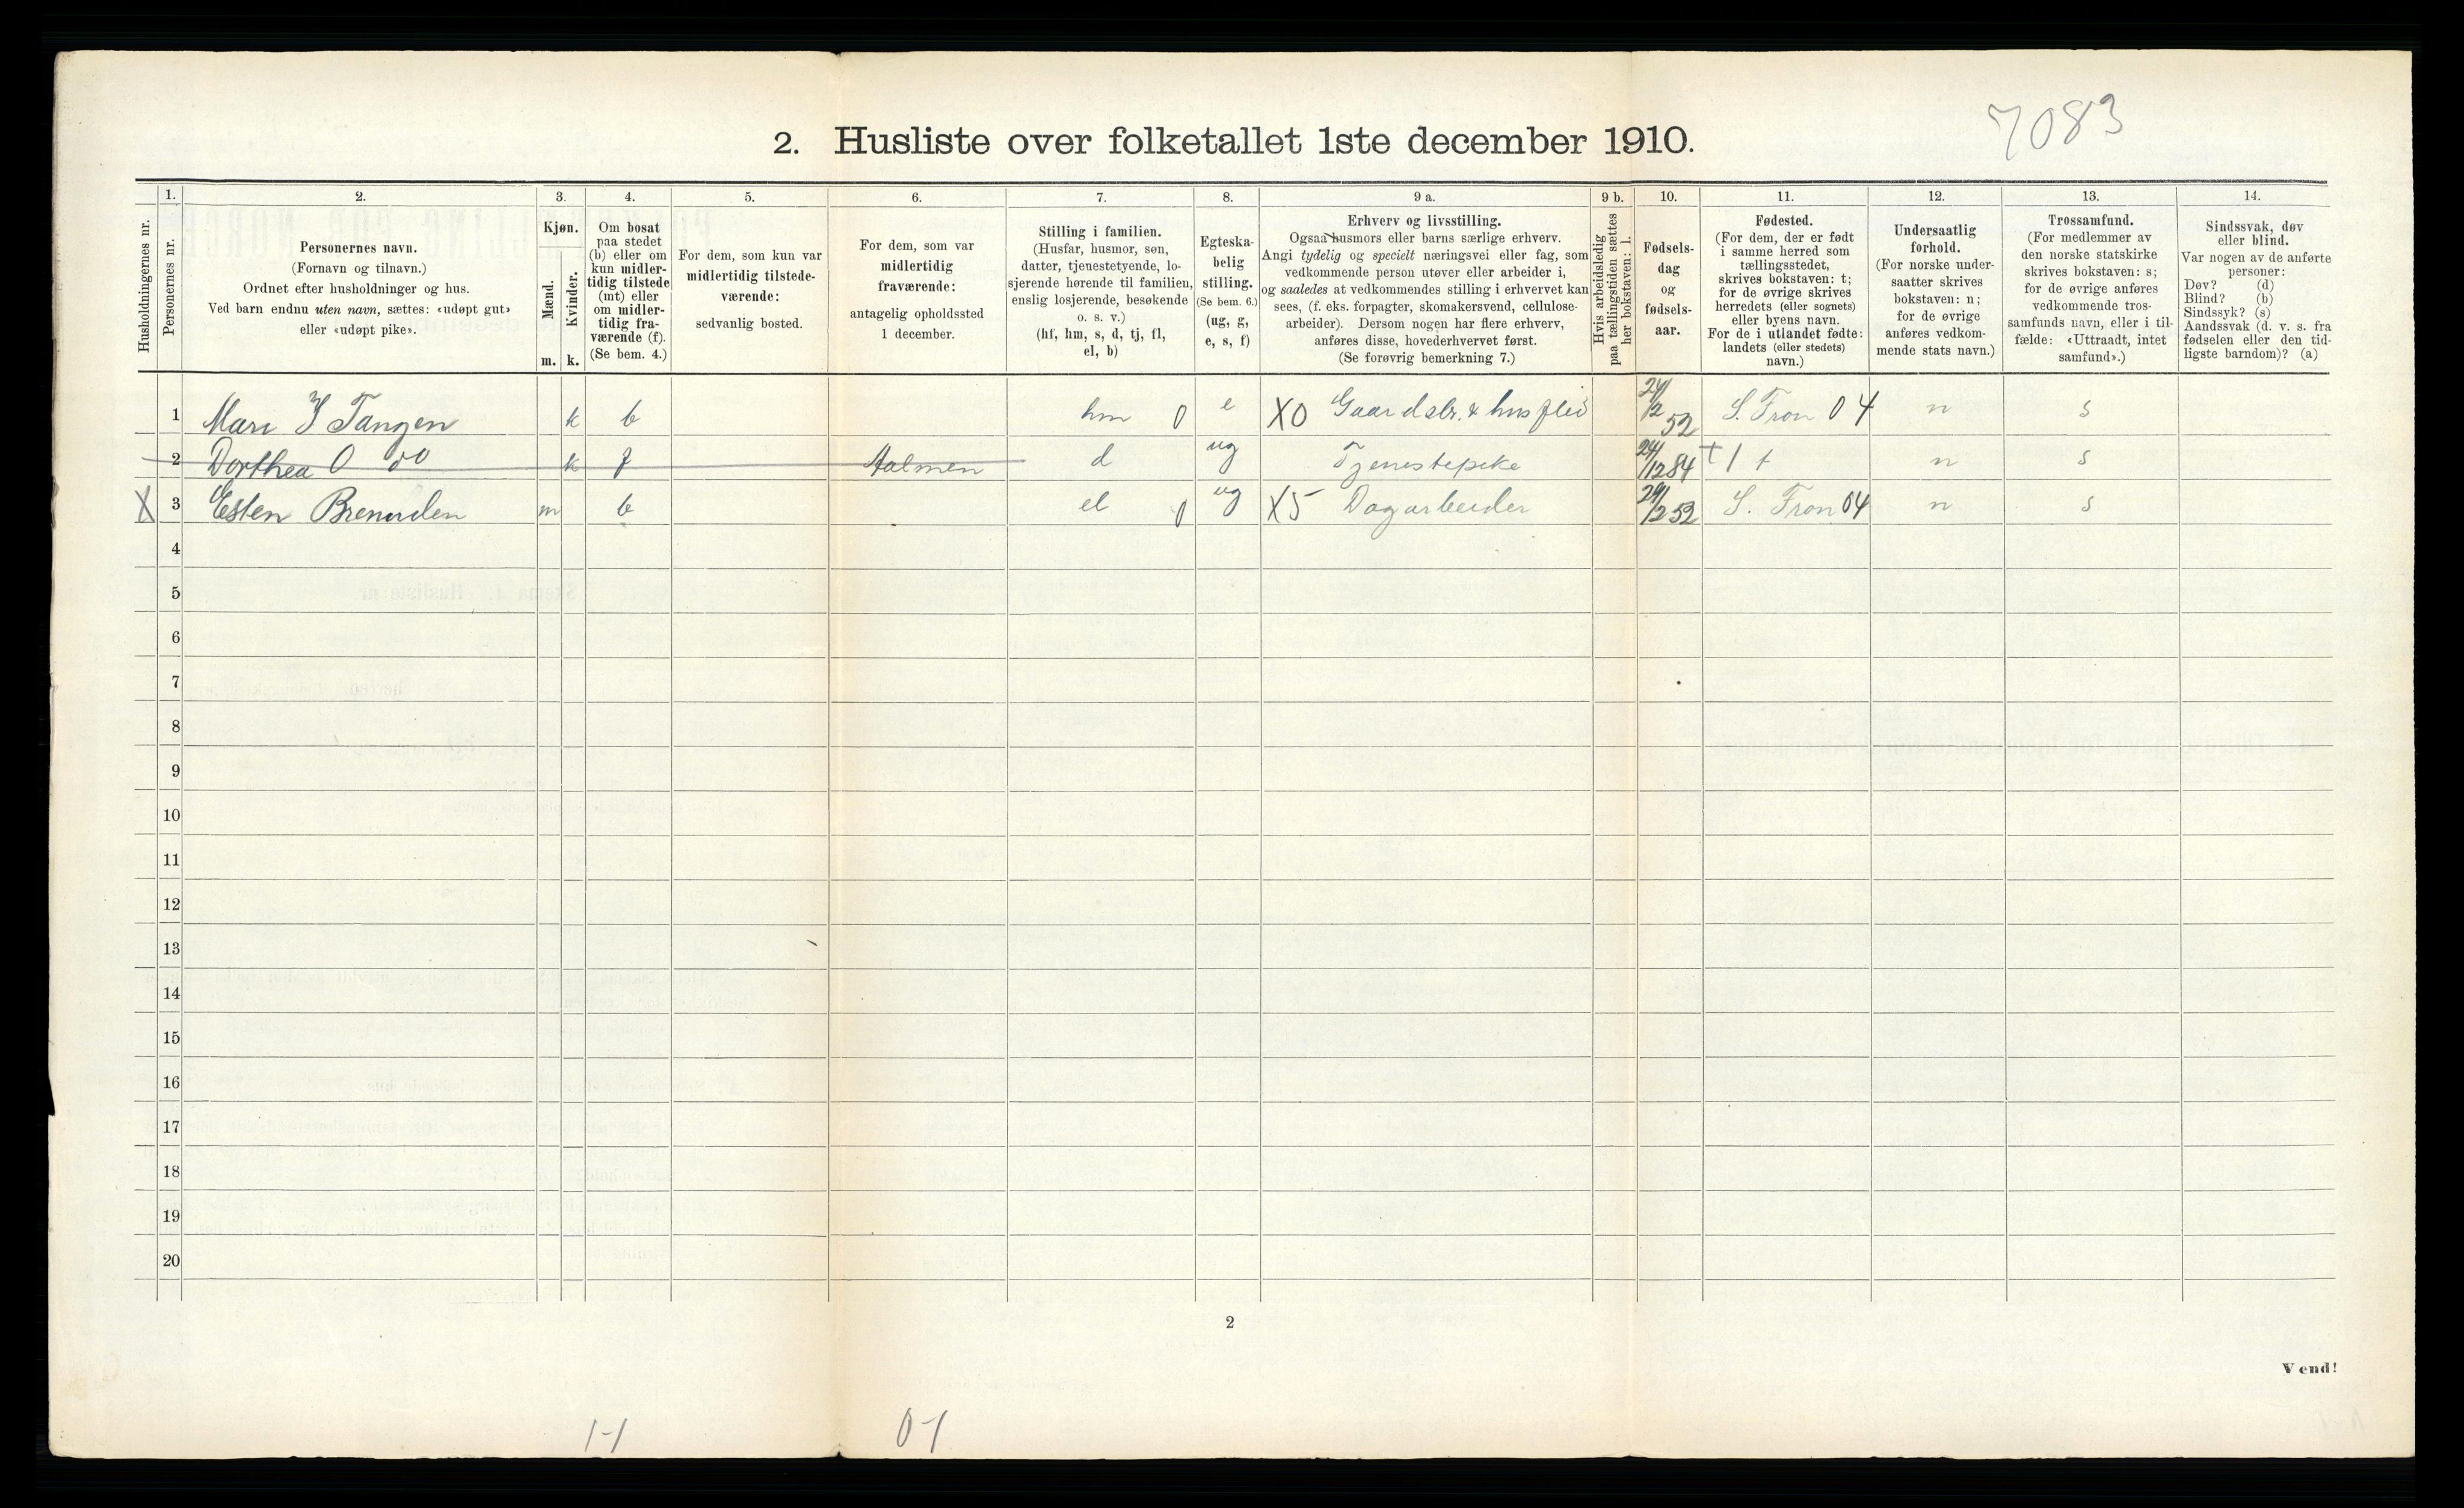 7083
2. Husliste over folketallet 1ste december 1910.
Husholdningernes nr.
1.
Personernes nr.
2.
Personernes navn.
(Fornavn og tilnavn.)
Ordnet efter husholdninger og hus.
Ved barn endnu uten navn, sættes: «udøpt gut»
eller «udøpt pike».
3.
Kjøn.
Mænd.
Kvinder.
m. k.
4.
Om bosat
paa stedet
(b) eller om
kun midler-
tidig tilstede
(mt) eller
om midler-
tidig fra-
værende (f).
(Se bem. 4.)
5.
For dem, som kun var
midlertidig tilstede-
værende:
sedvanlig bosted.
6.
For dem, som var
midlertidig
fraværende:
antagelig opholdssted
1 december.
7.
Stilling i familien.
(Husfar, husmor, søn,
datter, tjenestetyende, lo-
sjerende hørende til familien,
enslig losjerende, besøkende
o. s. v.)
(hf, hm, s, d, tj, fl,
el, b)
8.
Egteska-
belig
stilling.
(Se bem. 6.)
(ug, g,
e, s, f)
9 a.
Erhverv og livsstilling.
Ogsaa husmors eller barns særlige erhverv.
Angi tydelig og specielt næringsvei eller fag, som
vedkommende person utøver eller arbeider i,
og saaledes at vedkommendes stilling i erhvervet kan
sees, (f. eks. forpagter, skomakersvend, cellulose-
arbeider). Dersom nogen har flere erhverv,
anføres disse, hovederhvervet først.
(Se forøvrig bemerkning 7.)
9 b.
Hvis arbeidsledig
paa tællingstiden sættes
her bokstaven: l.
10.
Fødsels-
dag
og
fødsels-
aar.
11.
Fødested.
(For dem, der er født
i samme herred som
tællingsstedet,
skrives bokstaven: t;
for de øvrige skrives
herredets (eller sognets)
eller byens navn.
For de i utlandet fødte:
landets (eller stedets)
navn.)
12.
Undersaatlig
forhold.
(For norske under-
saatter skrives
bokstaven: n;
for de øvrige
anføres vedkom-
mende stats navn.)
13.
Trossamfund.
(For medlemmer av
den norske statskirke
skrives bokstaven: s;
for de øvrige anføres
vedkommende tros-
samfunds navn, eller i til-
fælde: «Uttraadt, intet
samfund».)
14.
Sindssvak, døv
eller blind.
Var nogen av de anførte
personer:
Døv? (d)
Blind? (b)
Sindssyk? (s)
Aandssvak (d. v. s. fra
fødselen eller den tid-
ligste barndom)? (a)
1 Mari I Tangen k b hm 0 e X0 Gaardsbr. & husflid 24/2 52 S. Fron 04 n s
2 Dorthea O do k f d ug Tjenestepike 24/12 84 t n s
X 3 Esten Brenden m b el 0 ug X5 Dagarbeider 29/2 52 S. Fron 04 n s
4
5
6
7
8
9
10
11
12
13
14
15
16
17
18
19
20
2
Vend!
1-1 0-1